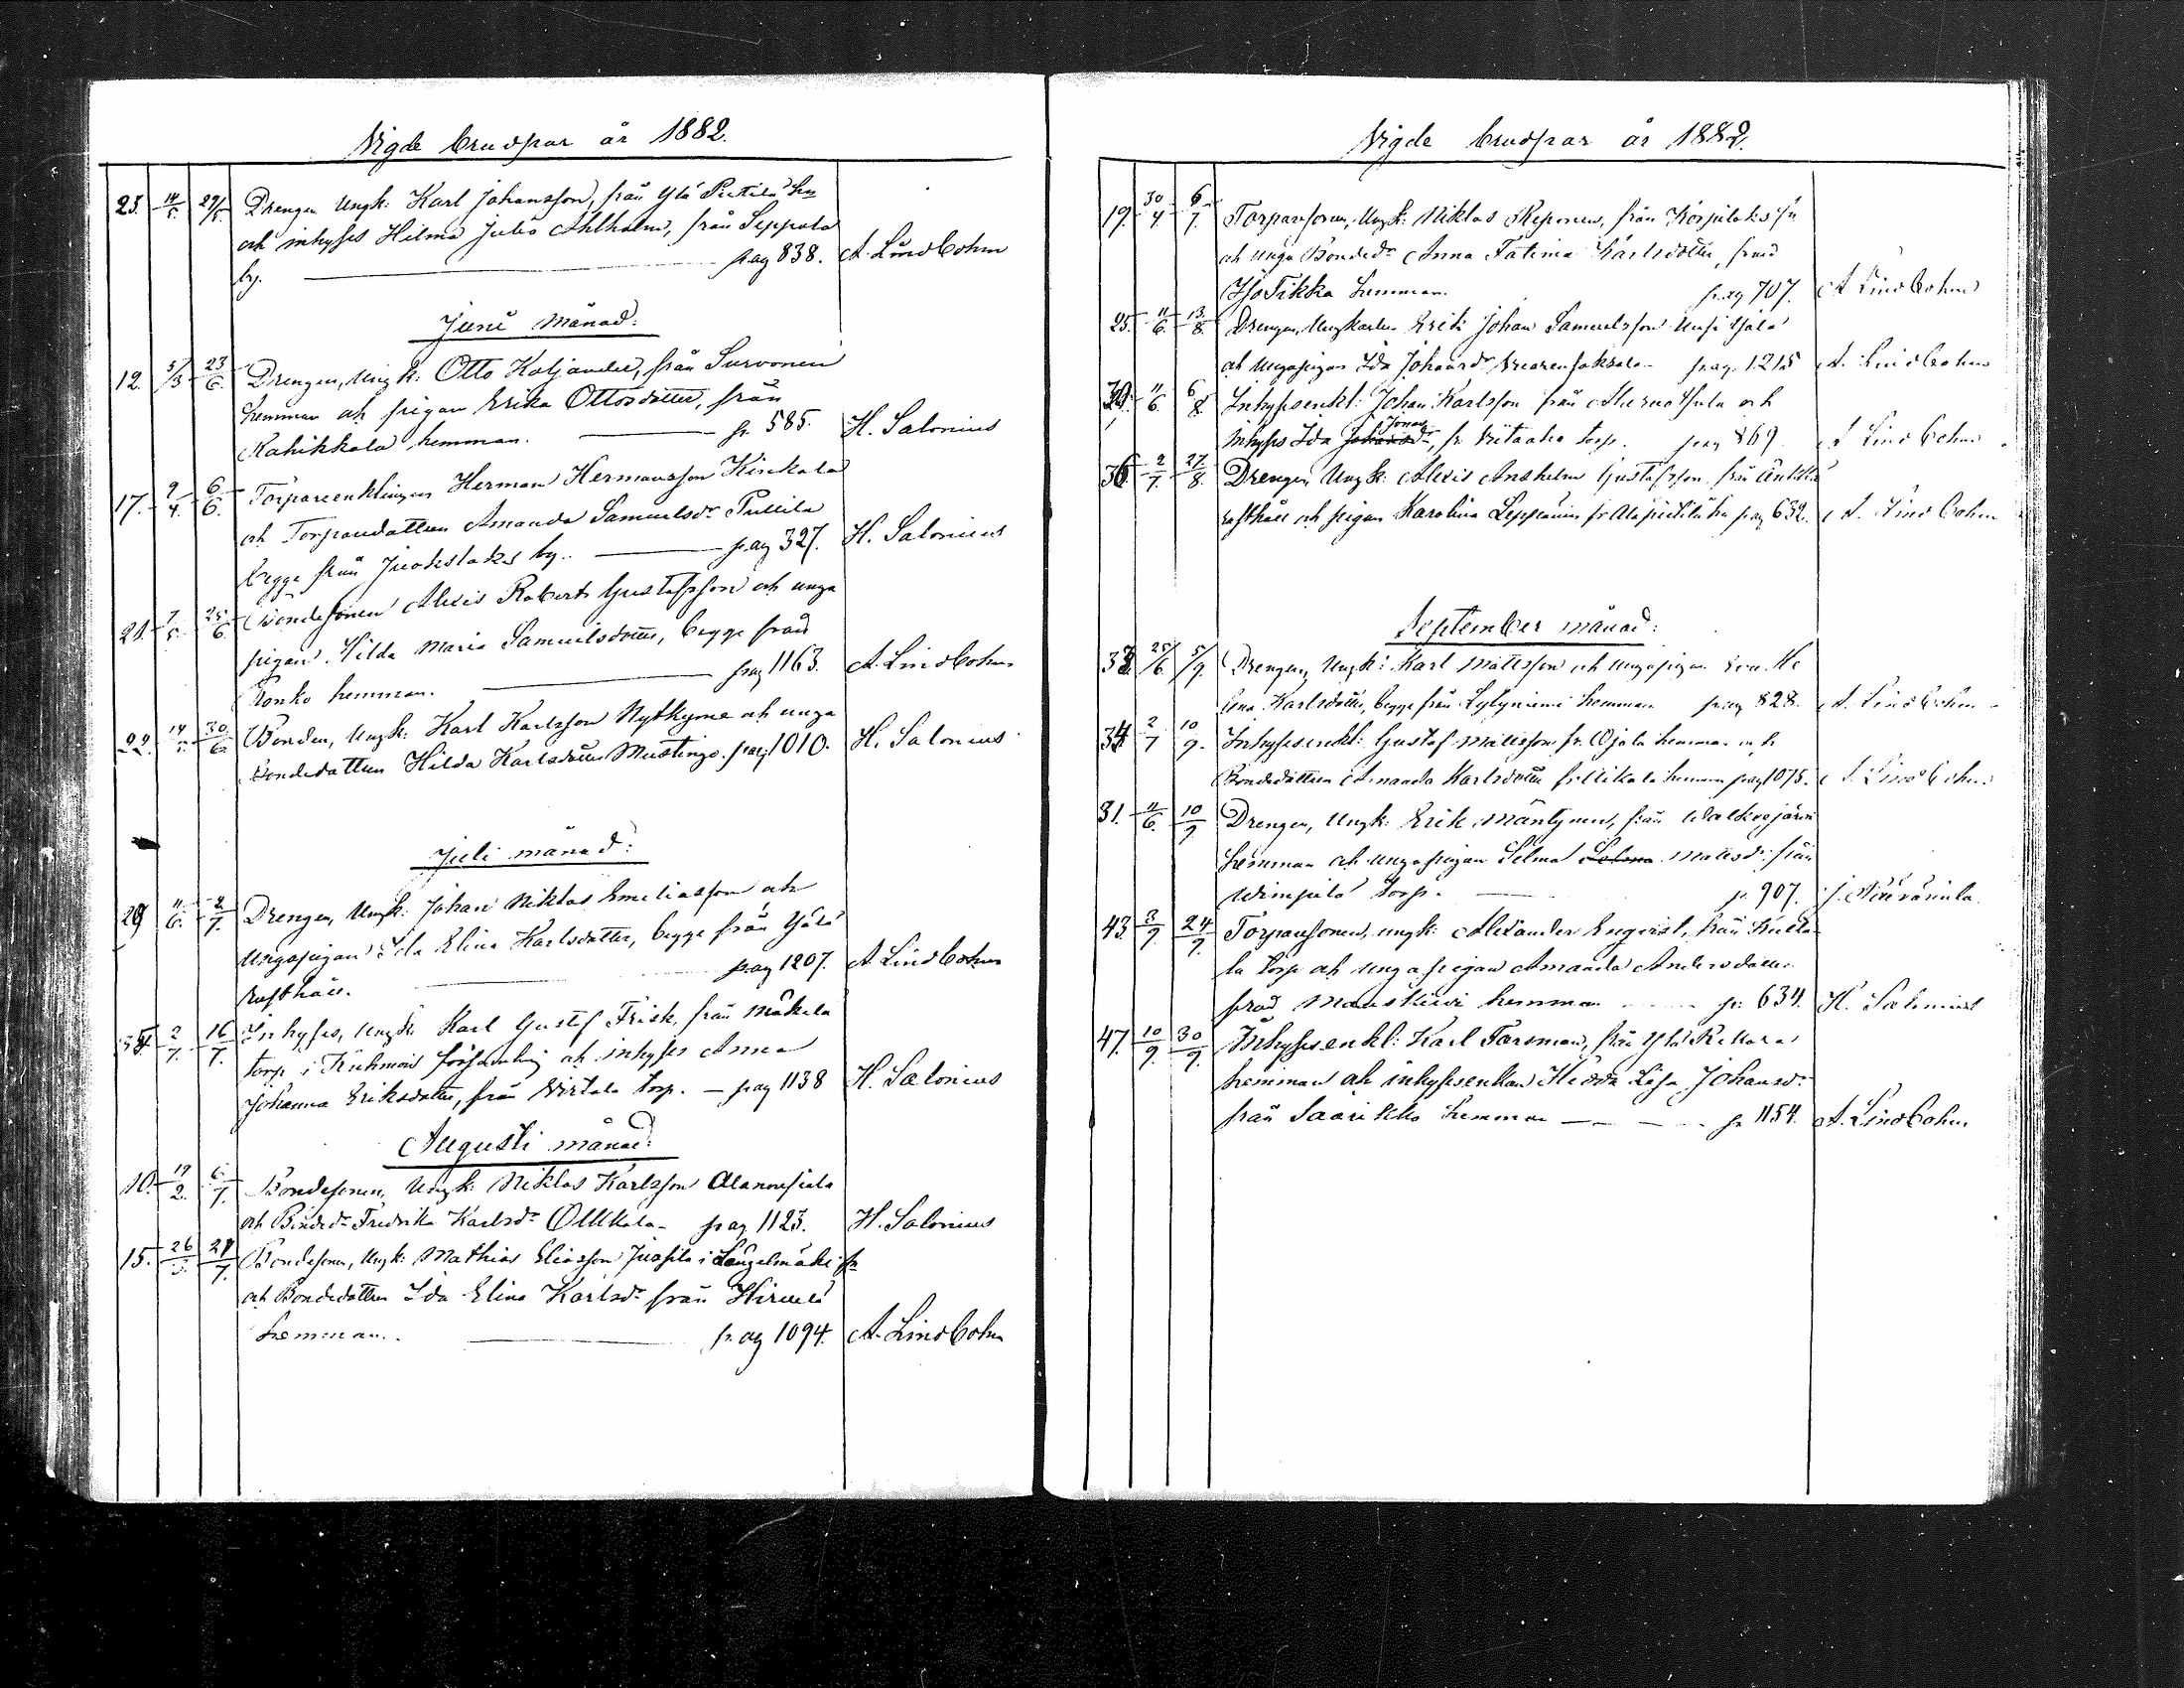 Vigde brudpar år 1882.
23. 14/5 29/5 Drengen Ungk: Karl Johansson, från Ylä Pietilä hn
och inhyses Hilma Julia Ahlholm, från Seppola
by. pag 838. A. Lindbohm
Juni månad:
12. 5/3 23/6 Drengen, Ungk: Otto Koljander, från Survonen
hemman och pigan Erika Ottosdotter, från
Rahikkala hemman. p. 585. H. Salonius
17. 9/4 6/6 Torpareenklingen Herman Hermansson Kinkala
och Torparedottren Amanda Samuelsdr Pullila
begge från Juokslahti by. pag 327. H. Salonius
21. 7/5 25/6 Bondesonen Alexis Robert Gustafsson och unga
pigan Hilda Maria Samuelsdotter, begge från
Ronko hemman. pag 1163. A. Lindbohm
22. 14/5 30/6 Bonden, Ungk: Karl Karlsson Nytkyme och unga
Bondedottren Hilda Karlsdotter Mustinge. pag 1010. H. Salonius
Juli månad:
29 11/6 2/7 Drengen, Ungk: Johan Niklas Emeliasson och
Ungapigan Ida Elina Karlsdotter, begge från Yälä
rusthåll. pag 1207. A. Lindbohm
2/7 16/7 Inhyses, Ungk: Karl Gustaf Frisk, från Mäkelä
torp i Kuhmois församling och inhyses Anna
Johanna Eriksdotter, från Virtala torp. — pag 1138 H. Salonius
Augusti månad:
10. 19/2 6/7 Bondesonen, Ungk: Niklas Karlsson
och Bonded: Fredrika Karlsdr Ollikala. pag 1123. H. Salonius
15. 26/3 27/7 Bondesonen, Ungk: Mathias Eliasson Juosila i Längelmäki sn
och Bondedottren Ida Elina Karlsdr från
hemman. pag 1094. A. Lindbohm
Vigde brudpar år 1882.
19. 30/4 6/7 Torparesonen, Ungk: Niklas Reponen, från Korpilaks sn
och unga Bondedr Anna Fatima Karlsdotter, från
Iso Tikka hemman. pag 707. A Lindbohm
25. 11/6 13/8 Drengen, Ungkarlen Erik Johan Samuelsson
och Ungapigan Ida Johansdr pag. 1215 A. Lindbohm
11/6 6/8 Inhysesenkl: Johan Karlsson från och
Inhyses Ida Johansdr Jonas, fr. Viitaaho torp. pag 869 A Lindbohm
36. 2/7 27/8 Drengen Ungk: Alexis Anshelm Gustafsson från
rusthåll och pigan Karolina Leppänen fr Alapietilä hn pag 632. A. Lindbohm
September månad:
25/6 5/9. Drengen, Ungk: Karl Mattsson och Ungapigan
Karlsdotter, begge från Lylyniemi hemman pag 828. A. Lindbohm
34. 2/7 10/9. Inhysesenkl: Gustaf Mattsson fr. Ojala hemman och
Bondedottren Amanda Karlsdotter fr. hemman pag 1075. A. Lindbohm
31. 11/6. 10/9 Drengen, Ungk: Erik Mäntynen, från Walkeajärvi
hemman och ungapigan Selma Selma Mattsdr från
torp. p. 907.
43. 3/9. 24/9 Torparesonen, ungk: Alexander Engvist, från Kulta
la torp och ungapigan Amanda Andersdotter
från hemman p: 634. H. Salonius
47. 10/9. 30/9. Inhysesenkl: Karl Forsman, från Ylä Rekora
hemman och inhysesenkan Hedda Lisa Johansdr
från Saarikko hemman p. 1154. A. Lindbohm